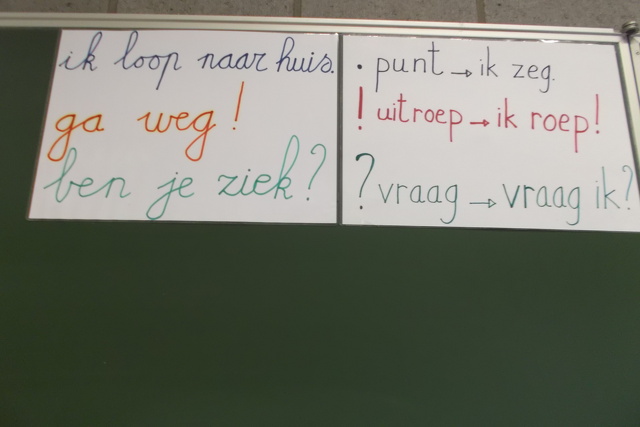 ik loop naar huis.
ga weg!
ben je ziek?
. punt → ik zeg.
! uitroep → ik roep!
? vraag → vraag ik?